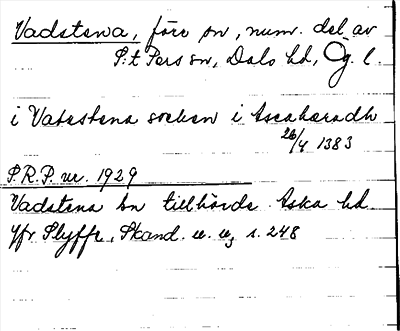 Vadstena, förr sn, num. del av
S:t Pers sn, Dals hd, Ög. l.
i Vatzstena socken i Ascaharadh
26/4 1383
S.R.P. nr. 1929
Vadstena sn tillhörde Aska hd.
Jfr Styffe, Skand. u. u, s. 248